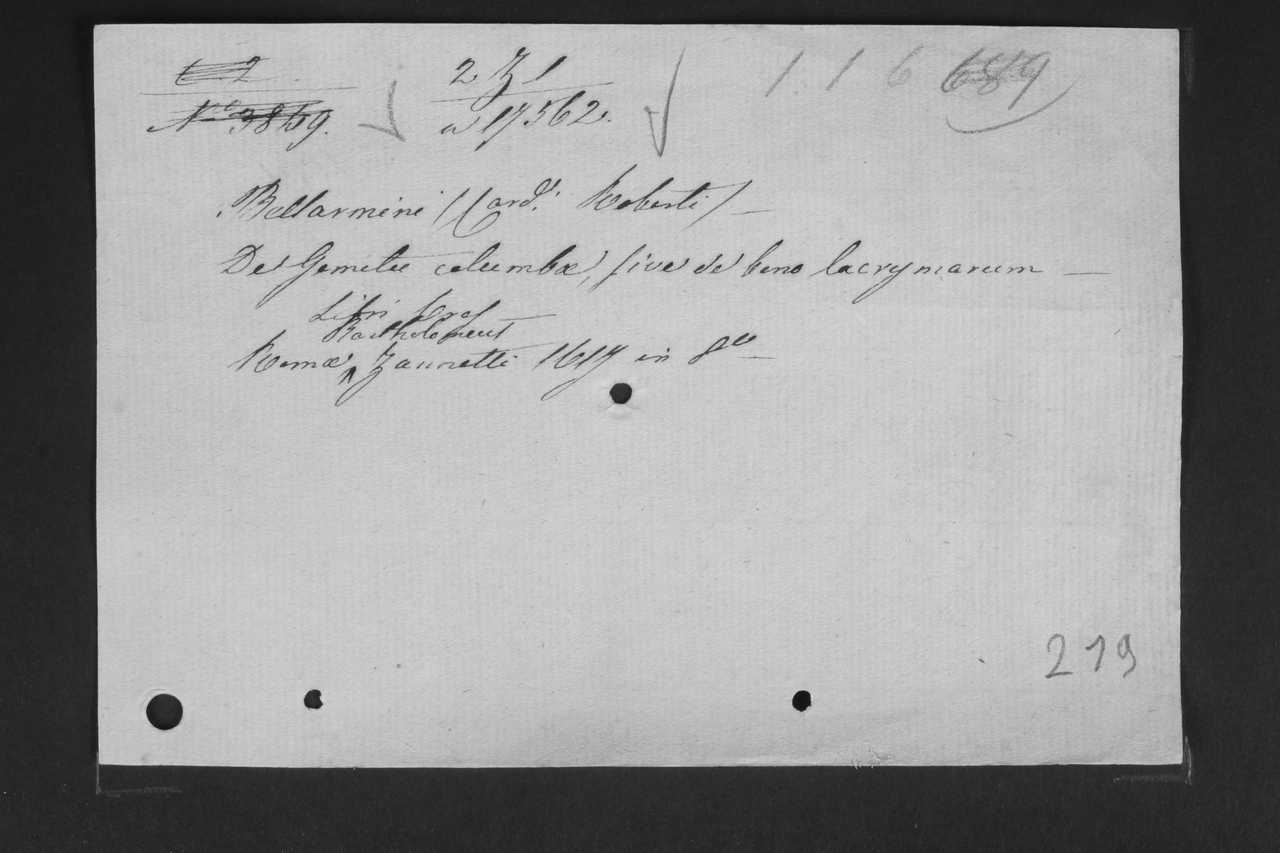 2 Z 1 1 1 6
No 3859. a 17562.
Bellarmini (Card. Roberti) —
De Gemitu columbæ, sive de bono lacrymarum —
Libri tres
Bartholomeus
Romæ Zannetti 1617 in 8vo
219